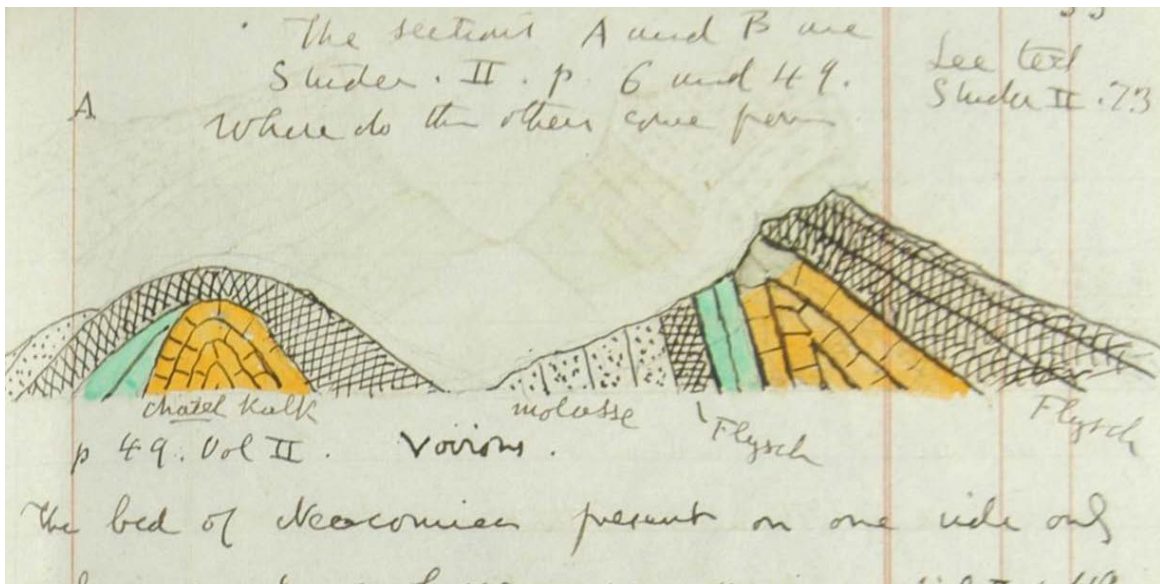 The sections A and B are
Studer. II. p. 6 and 49.
Where do the others come from
See text
Studer II. 73
A
chatel Kalk
molasse
Flysch
Flysch
p 49. Vol II. Voirons.
The bed of Neocomien present on one side only